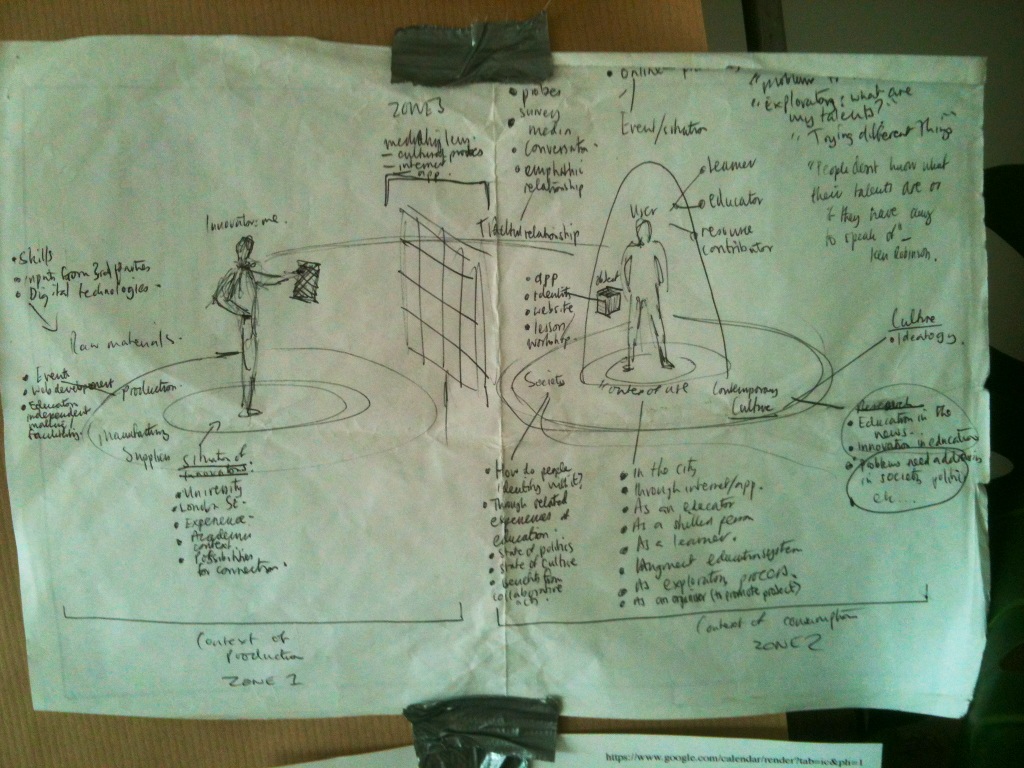 ZONE 3
- cultural probes
- internet
- app.
• probes
survey
• media
• Conversation
• emphathic
relationship
• online
Event/situation
"problem"
"Exploratory: what are
my talents?"
"Trying different Things"
"People don't know what
their talents are or
if they have any
to speak of" -
Ken Robinson.
Innovator: me.
relationship
User
• Learner
• educator
• resource
contributor
• Skills
• inputs from 3rd parties
• Digital technologies.
Raw materials.
• Event
• Web development
• Education
independent
making
facility
Production
Manufacturing
Suppliers
• app
• identity
• website
• lesson
workshop
object
Society
Context of use
Contemporary
Culture
Culture
• Ideology.
Research
• Education in the
news...
• Innovation in education
• Problems need address
in society, politic
etc....
Situation of
Innovator:
• University
• London St.
• Experience
• Academic
context
• Possibilities
for connection.
• How do people
identify with it?
• Through related
experiences of
education.
• State of politics
• state of culture
• benefits from
collaborative
• in the city
• through internet/app.
• As an educator
• As a skilled person
• As a learner.
• Augment education system
• As exploration process.
• As an organiser (to promote project)
Context of
Production
ZONE 1
Context of consumption
ZONE 2
https://www.google.com/calendar/render?tab=ic&pli=1